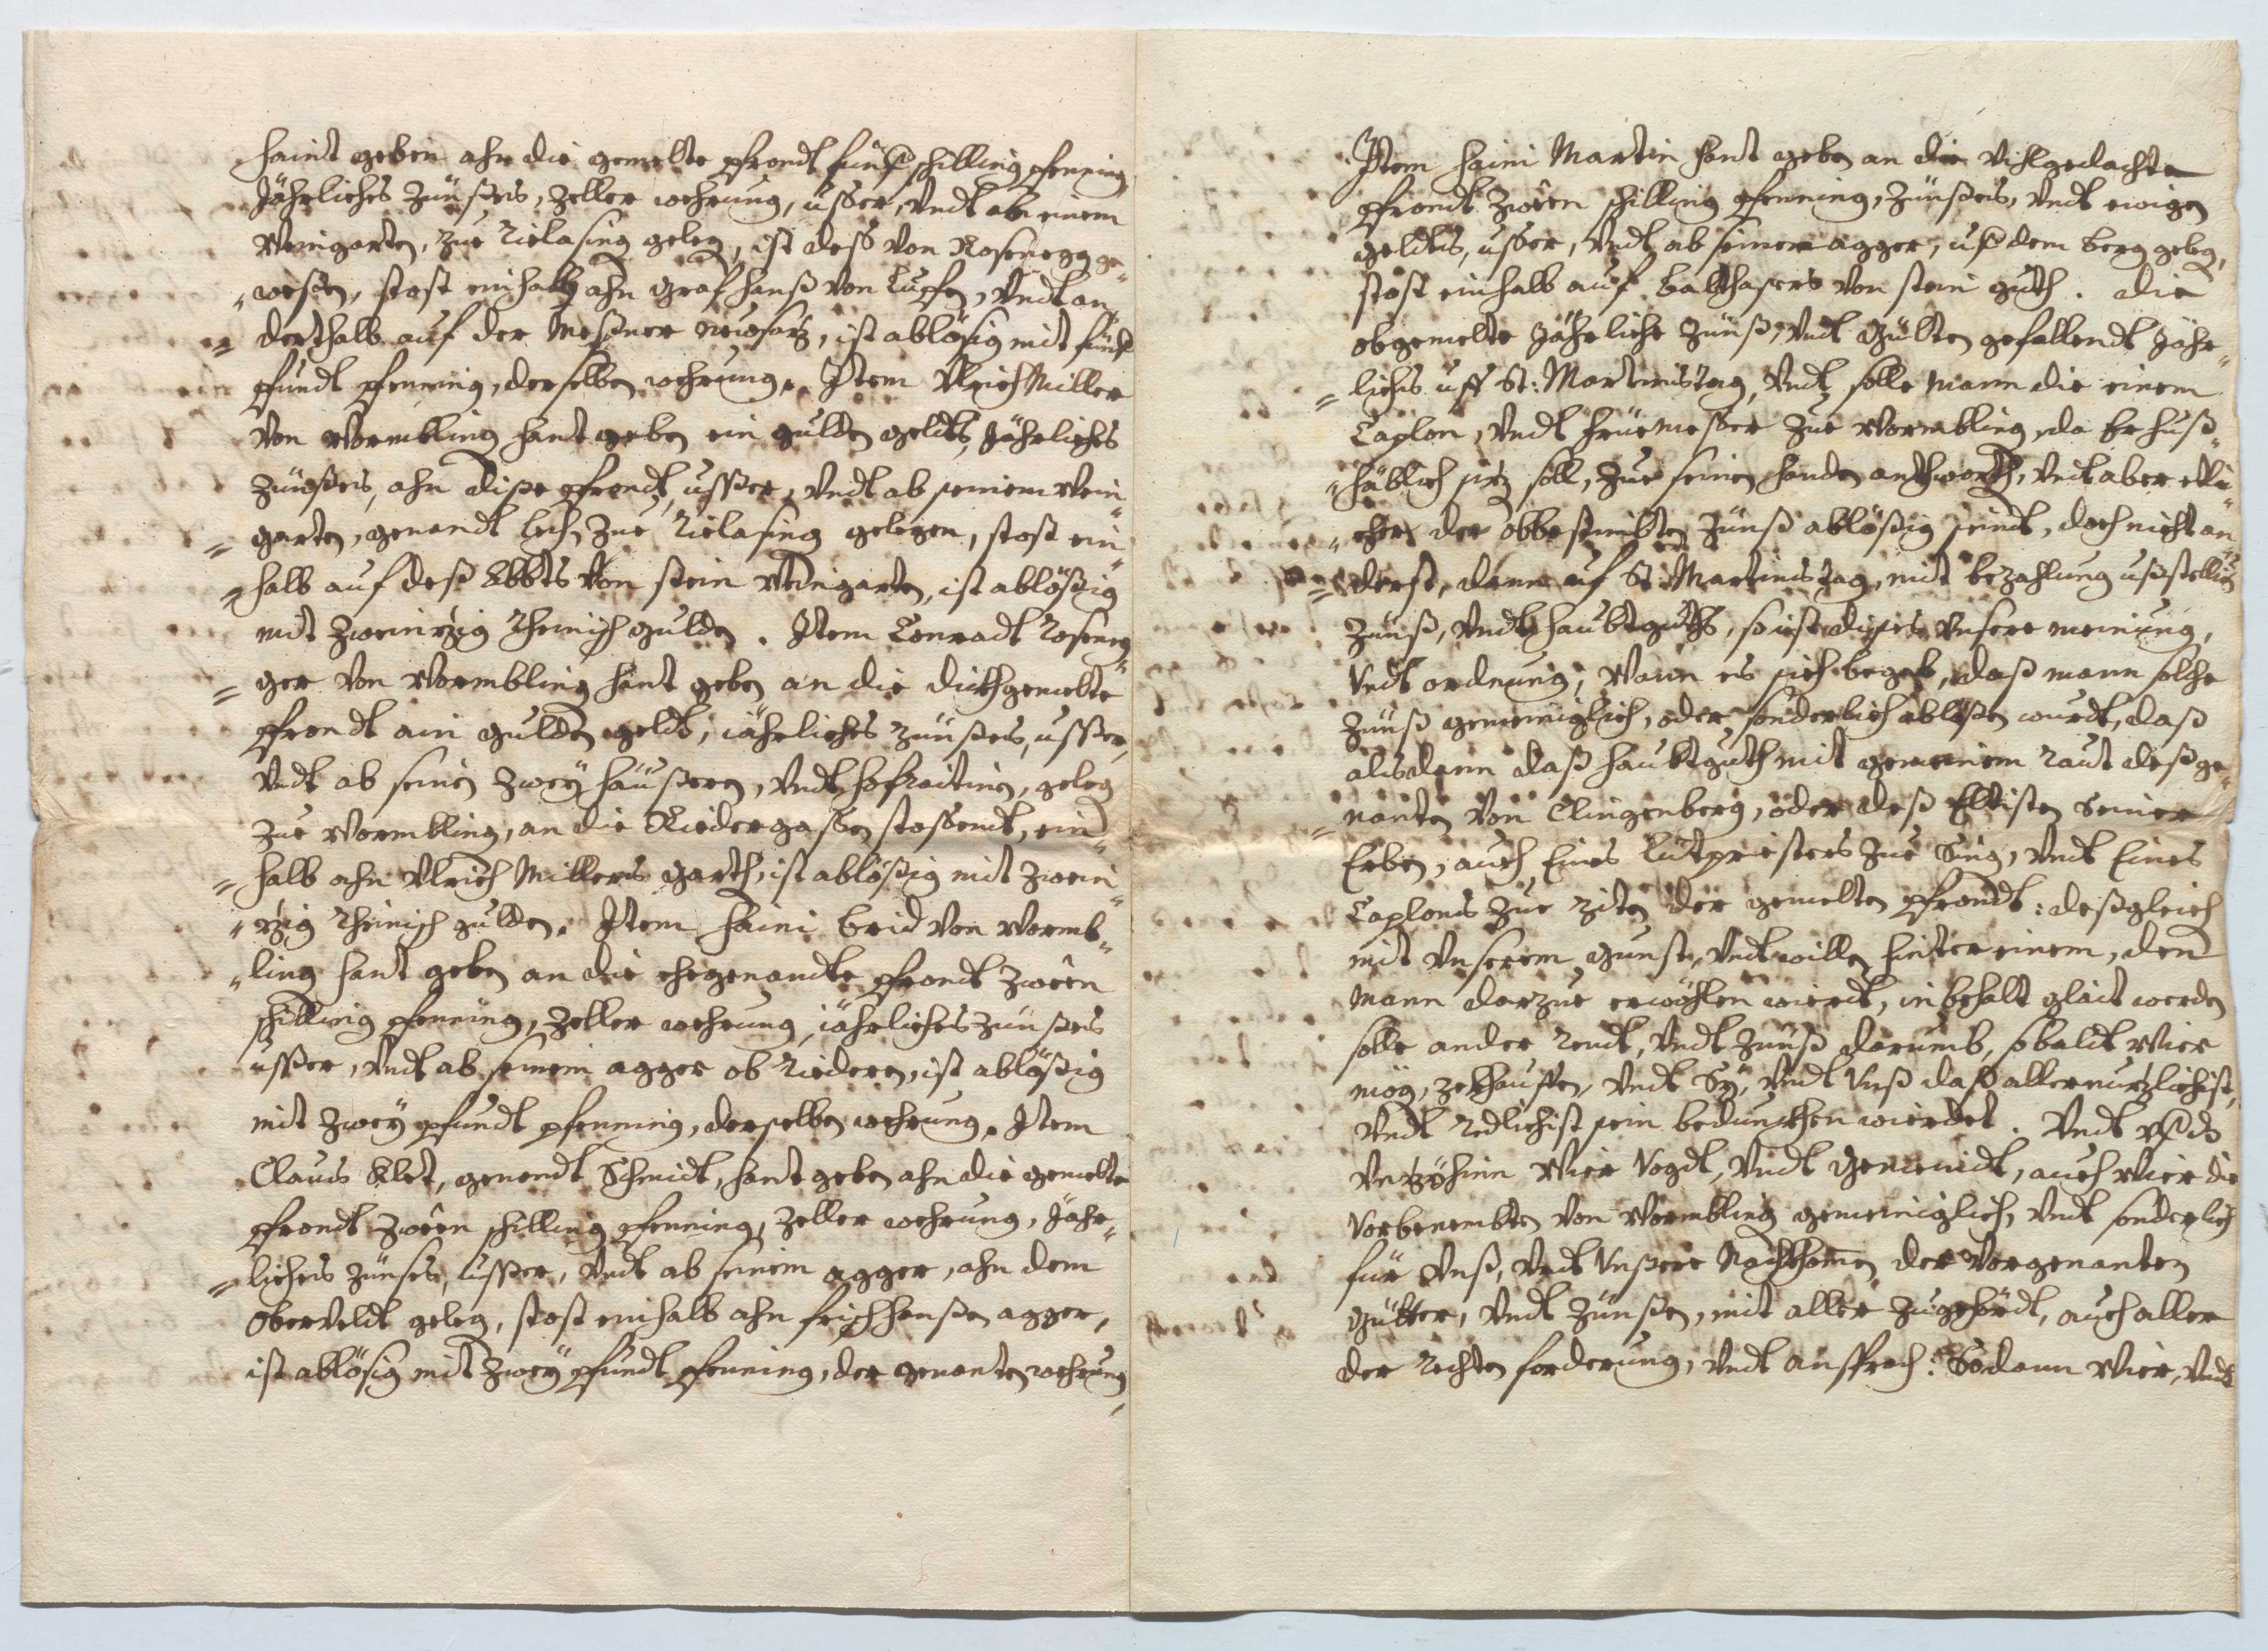 haint geben ahn die gemelte pfrondt fünff schilling pfenning
Jährliches Zünßes, Zeller wehrung, usser, Vndt ab einem
Weingarten, zue Rielasing geleg, ist deß Von Rosenegg ge„
„weßen, stost einhalb ahn Graf Hanß Von Lupfen, Vndt an„
„derthalb auf der Meßmer, ist ablösig mit fünf
pfundt pfenning, derselben wehrung. Item Vlrich Miller
Von Wormbling hant geben ein gulden geldts, Jährliches
Zünßes, ahn diße pfrondt, ussser, Vndt ab seinem Wein„
„garten, genandt Zue Rielasing gelegen, stost ein„
„halb auf deß Abbts Von Stein Weingarten, ist ablößig
mit Zweintzig Rheinisch gulden. Item Conradt Roseneg„
„ger Von Wormbling hant geben an die dickhgemelte
pfrondt ain gulden geldt, jährliches Zünßes, ussser,
Vndt ab seinen Zwey häußern, Vndt hofraitinen, geleg
Zue Wormbling, an die Niedergassen stossendt, ein„
„halb ahn Vlrich Millers garth, ist ablößig mit Zwein„
„tzig Rheinisch gulden. Item Haini Von Wormb„
„ling hant geben an die ehegenandte pfrondt Zwêen
schilling pfenning, Zeller wehrung, jährliches Zünßes
ussser, Vndt ab seinem agger ob Riederen, ist ablößig
mit Zwey pfundt pfenning, derselben wehrung. Item
Claus genendt Schmidt, hant geben ahn die gemelte
pfrondt Zwêen schilling pfenning, Zeller wehrung, Jähr„
„liches Zünses, ussser, Vndt ab seinem agger, ahn dem
Oberveldt geleg, stost einhalb ahn agger,
ist ablösig mit Zwey pfundt pfenning, der genanten wehrung,
Item Haini Martin hant geben an die Vihlgedachte
pfrondt Zwêen schilling pfenning, Zünßes, Vndt ewigen
geldts, usser, Vndt ab seinem agger, uf dem berg geleg,
stost einhalb auf Balthasers Von Stein guth. Die
obgemelte Jährliche Zünß, Vndt Gülten gefallendt Jähr„
„liches uff St: Martinstag, Vndt solle Mann die einem
Caplon, Vndt Früemesser Zue Wormbling, da Er huß„
„häblich sitz soll, Zue seinen handen anthworth, Vndt aber etli„
„chen der obbestimbten Zünß ablößig seindt, doch nicht an„
„derst, dann uf St: Martinstag, mit bezahlung ußstelligs
Zünß, Vndt haubtguths, so ist dißes Vnsere meinung,
Vndt ordnung, Wann es sich begeb, daß mann solche
Zünß gemeiniglich, oder sonderlich ablößen wurdt, daß
alsdann daß haubtguth mit gemeinem raut deß ge„
„nanten Von Clingenberg, oder deß Eltisten Seiner
Erben, auch Eines Lütpriesters Zue Sing, Vndt Eines
Caplons Zue Ziten der gemelten pfrondt: deßgleich
mit Vnserem gunst, Vndt willen hinter einem, den
Mann darzue erwöhlen wierdt, in behalt glait werden
solle an der Rendt, Vndt Zünß darumb, so baldt Wier
mög, ze khauffen, Vndt Sÿ, Vndt Vnß daß aller nutzlichist,
Vndt Redlichist sein bedunckhen wierdet. Vndt uf ds
Verzöhinn Wier Vogdt, Vndt Gemeindt, auch Wier die
Vorbenembten Von Wormbling gemeiniglich, Vndt sonderlich
für Vnß, Vndt Vnßere Nachkhomen der Vorgenanten
Gütter, Vndt Zünßen, mit aller Zugehördt, auch aller
der Rechten forderung, Vndt ansprach: So dann Wier, Vndt